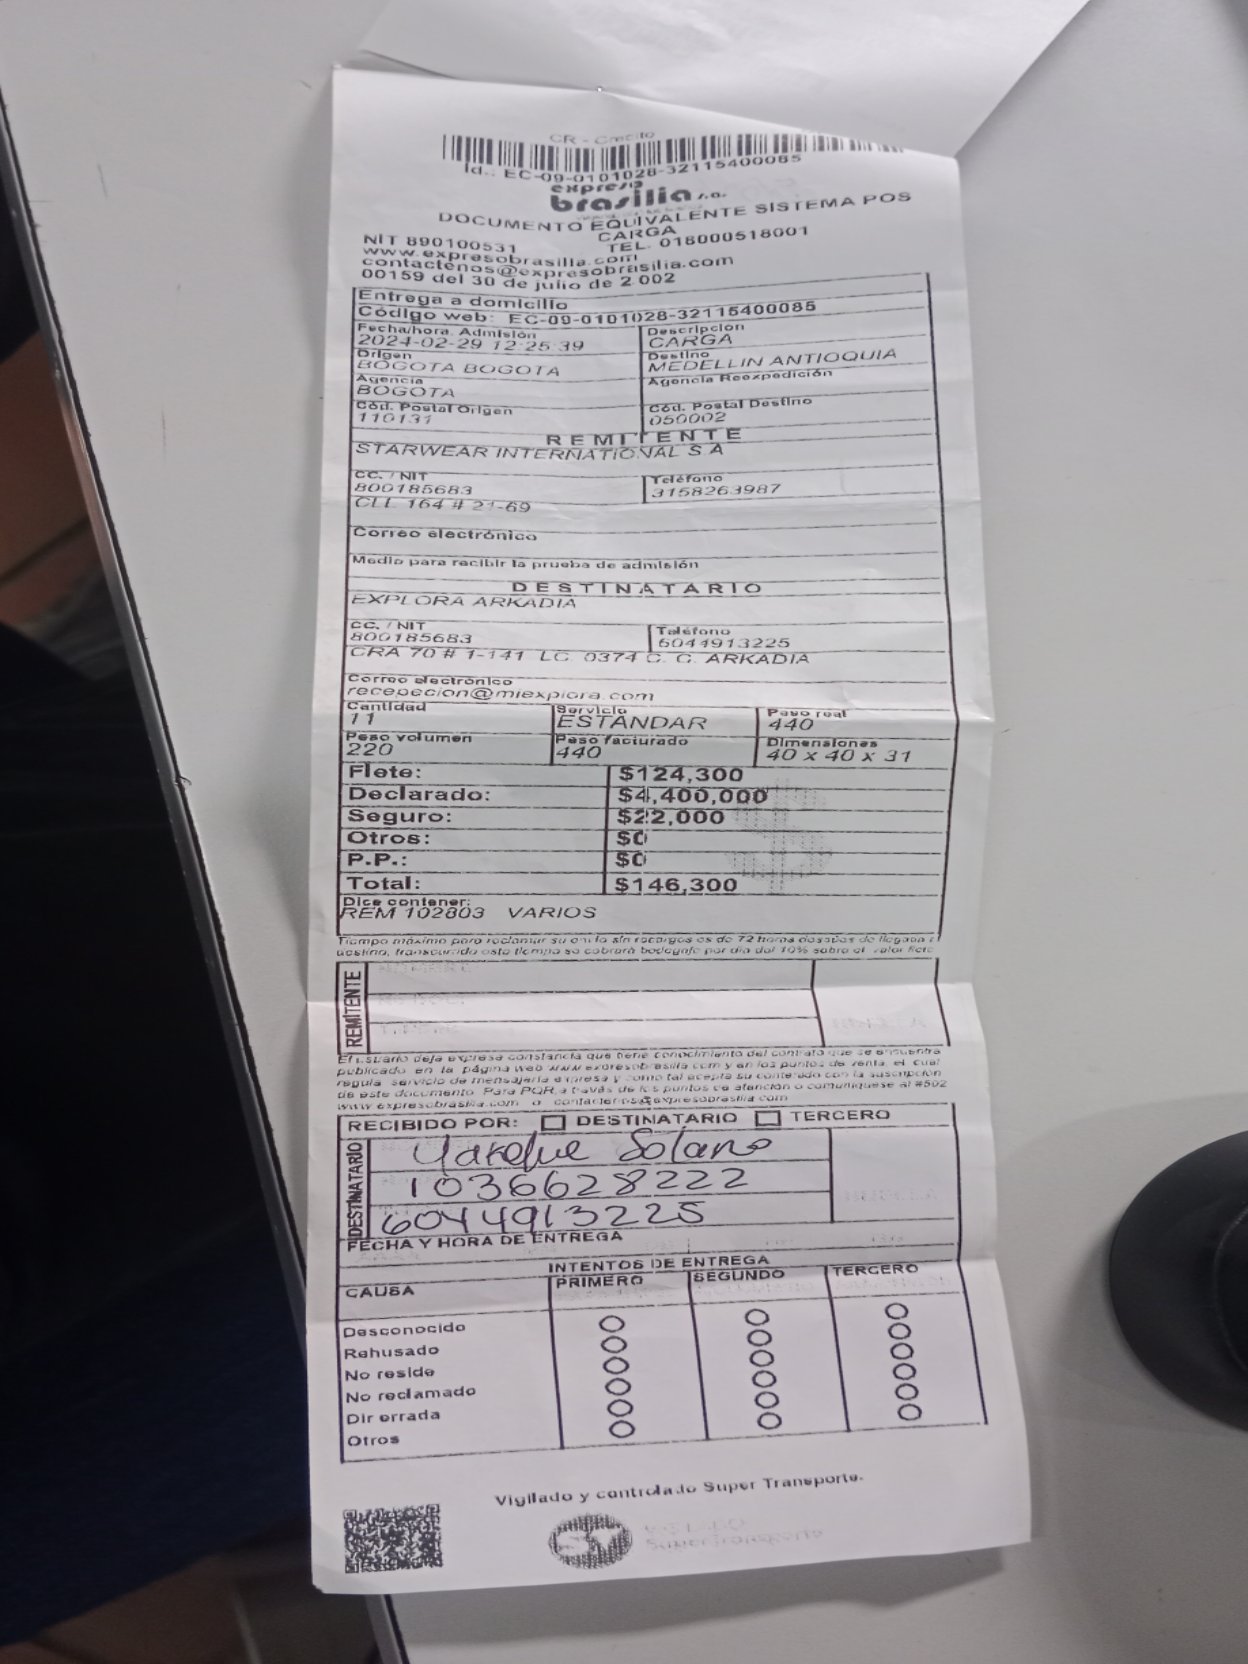 CR - Credito
Id.: EC-09-0101028-32115400085
expreso
brasilia s.a.
DOCUMENTO EQUIVALENTE SISTEMA POS
CARGA
NIT 890100531 TEL. 018000518001
www.expresobrasilia.com
contactenos@expresobrasilia.com
00159 del 30 de julio de 2.002
Entrega a domicilio
Código web: EC-09-0101028-32115400085
Fecha/hora. Admisión Descripción
2024-02-29 12:25:39 CARGA
Origen Destino
BOGOTA BOGOTA MEDELLIN ANTIOQUIA
Agencia Agencia Reexpedición
BOGOTA
Cód. Postal Origen Cód. Postal Destino
110131 050002
REMITENTE
STARWEAR INTERNATIONAL S A
CC. / NIT Teléfono
800185683 3158263987
CLL 164 # 21-69
Correo electrónico
Medio para recibir la prueba de admisión
DESTINATARIO
EXPLORA ARKADIA
CC. / NIT Teléfono
800185683 6044913225
CRA 70 # 1-141 LC. 0374 C. C. ARKADIA
Correo electrónico
recepecion@miexplora.com
Cantidad Servicio Peso real
11 ESTANDAR 440
Peso volumen Peso facturado Dimensiones
220 440 40 x 40 x 31
Flete: $124,300
Declarado: $4,400,000
Seguro: $22,000
Otros: $0
P.P.: $0
Total: $146,300
Dice contener:
REM 102803 VARIOS
Tiempo máximo para reclamar su envío sin recargos es de 72 horas después de llegada a
destino, transcurrido este tiempo se cobrará bodegaje por día del 10% sobre el valor flete
REMITENTE
El usuario deja expresa constancia que tiene conocimiento del contrato que se encuentra
publicado en la página web www.expresobrasilia.com y en los puntos de venta, el cual
regula servicio de mensajería expresa y como tal acepta su contenido con la suscripción
de este documento. Para PQR, a través de los puntos de atención o comuníquese al #502
www.expresobrasilia.com o contactenos@expresobrasilia.com
RECIBIDO POR: DESTINATARIO TERCERO
DESTINATARIO
Solano
1036628222
6044913225
FECHA Y HORA DE ENTREGA
INTENTOS DE ENTREGA
CAUSA PRIMERO SEGUNDO TERCERO
Desconocido
Rehusado
No reside
No reclamado
Dir errada
Otros
Vigilado y controlado Super Transporte.